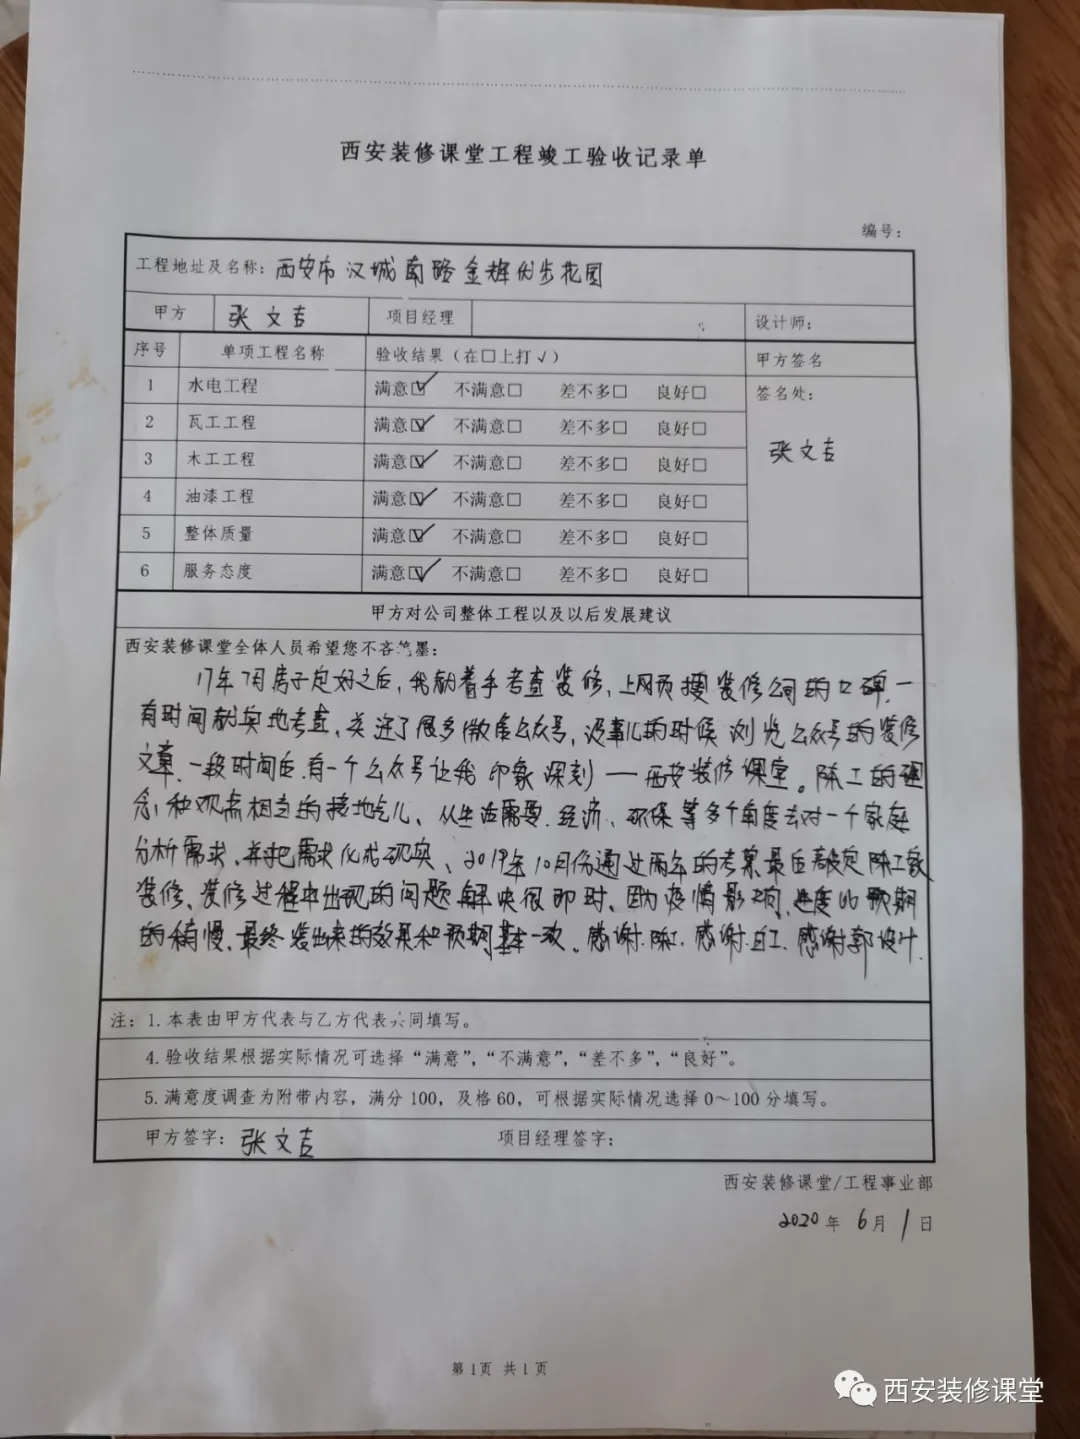 西安装修课堂工程竣工验收记录单
编号：
工程地址及名称：西安市汉城南路金辉优步花园
甲方 张文吉 项目经理 设计师：
序号 单项工程名称 验收结果（在□上打√） 甲方签名
1 水电工程 满意☑ 不满意□ 差不多□ 良好□ 签名处：
2 瓦工工程 满意☑ 不满意□ 差不多□ 良好□
张文吉
3 木工工程 满意☑ 不满意□ 差不多□ 良好□
4 油漆工程 满意☑ 不满意□ 差不多□ 良好□
5 整体质量 满意☑ 不满意□ 差不多□ 良好□
6 服务态度 满意☑ 不满意□ 差不多□ 良好□
甲方对公司整体工程以及以后发展建议
西安装修课堂全体人员希望您不吝笔墨：
17年7月房子定好之后，我就着手考查装修，上网页搜装修公司的口碑，一
有时间就实地考查，关注了很多微信公众号，没事儿的时候浏览公众号的装修
文章，一段时间后，有一个公众号让我印象深刻——西安装修课堂。陈工的理
念和观点相当的接地气儿、从生活需要、经济、环保等多个角度去对一个家庭
分析需求，并把需求化成现实、2019年10月份通过两年的考察最后敲定陈工家
装修、装修过程中出现的问题解决很即时、因为疫情影响，进度比预期
的稍慢、最终装出来的效果和预期基本一致。感谢陈工，感谢白工，感谢郭设计.
注：1.本表由甲方代表与乙方代表共同填写。
4.验收结果根据实际情况可选择“满意”，“不满意”，“差不多”，“良好”。
5.满意度调查为附带内容，满分100，及格60，可根据实际情况选择0～100分填写。
甲方签字：张文吉 项目经理签字：
西安装修课堂/工程事业部
2020年6月1日
第1页 共1页
西安装修课堂